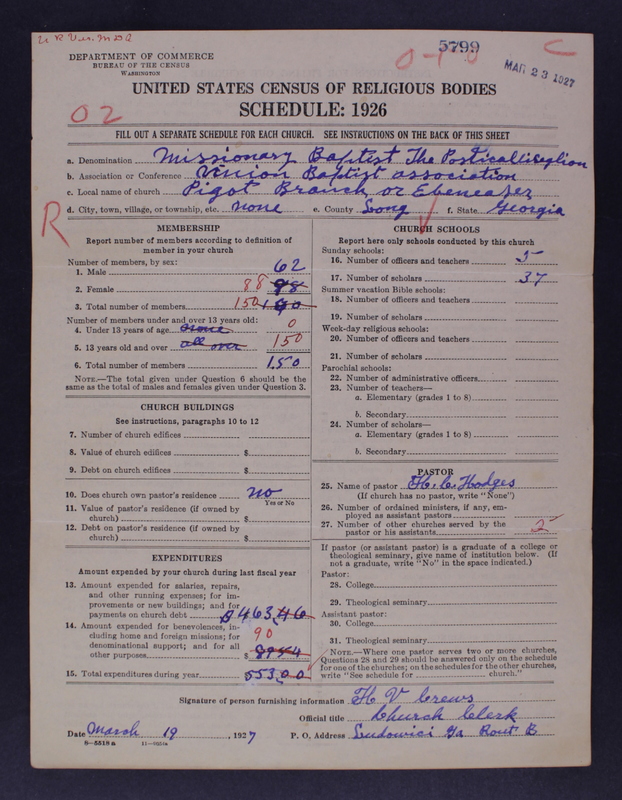 5799
C
MAR 23 1927
DEPARTMENT OF COMMERCE
BUREAU OF THE CENSUS
WASHINGTON
UNITED STATES CENSUS OF RELIGIOUS BODIES
SCHEDULE: 1926
02
FILL OUT A SEPARATE SCHEDULE FOR EACH CHURCH. SEE INSTRUCTIONS ON THE BACK OF THIS SHEET
a. Denomination Missionary Baptist The
b. Association or Conference Union Baptist association
c. Local name of church Pigot Branch or Ebeneazer
d. City, town, village, or township, etc. none e. County Long f. State Georgia
R
MEMBERSHIP
Report number of members according to definition of
member in your church
Number of members, by sex:
1. Male 62
2. Female 88 98
3. Total number of members 150
Number of members under and over 13 years old:
4. Under 13 years of age none 0
5. 13 years old and over all over 150
6. Total number of members 150
NOTE.—The total given under Question 6 should be the
same as the total of males and females given under Question 3.
CHURCH BUILDINGS
See instructions, paragraphs 10 to 12
7. Number of church edifices
8. Value of church edifices $
9. Debt on church edifices $
10. Does church own pastor's residence no
Yes or No
11. Value of pastor's residence (if owned by
church) $
12. Debt on pastor's residence (if owned by
church) $
EXPENDITURES
Amount expended by your church during last fiscal year
13. Amount expended for salaries, repairs,
and other running expenses; for im-
provements or new buildings; and for
payments on church debt $463.46
14. Amount expended for benevolences, in-
cluding home and foreign missions; for
denominational support; and for all
other purposes $ 90 8954
15. Total expenditures during year 553.00
CHURCH SCHOOLS
Report here only schools conducted by this church
Sunday schools:
16. Number of officers and teachers 5
17. Number of scholars 37
Summer vacation Bible schools:
18. Number of officers and teachers
19. Number of scholars
Week-day religious schools:
20. Number of officers and teachers
21. Number of scholars
Parochial schools:
22. Number of administrative officers
23. Number of teachers—
a. Elementary (grades 1 to 8)
b. Secondary
24. Number of scholars—
a. Elementary (grades 1 to 8)
b. Secondary
PASTOR
25. Name of pastor H. C. Hodges
(If church has no pastor, write "None")
26. Number of ordained ministers, if any, em-
ployed as assistant pastors
27. Number of other churches served by the
pastor or his assistants 2
If pastor (or assistant pastor) is a graduate of a college or
theological seminary, give name of institution below. (If
not a graduate, write "No" in the space indicated.)
Pastor:
28. College
29. Theological seminary
Assistant pastor:
30. College
31. Theological seminary
NOTE.—Where one pastor serves two or more churches,
Questions 28 and 29 should be answered only on the schedule
for one of the churches; on the schedules for the other churches,
write "See schedule for church."
Signature of person furnishing information H V Crews
Official title Church Clerk
Date March 19, 1927 P. O. Address Ludowici Ga Rout B
8—5518a